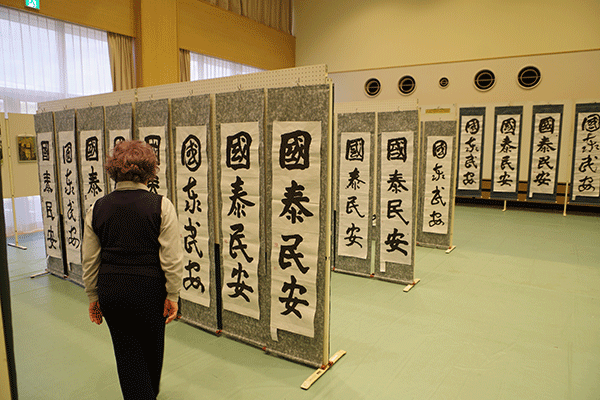 國泰民安
國泰民安
國泰
國
國泰民安
國泰民安
國泰民安
國泰民安
國泰民安
國泰民安
國泰民安
國泰民安
國泰民安
國泰民安